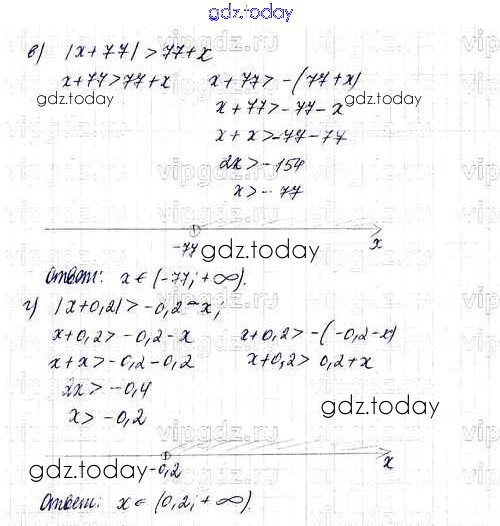 gdz.today
в) |x+77| > 77+x
x+77>77+x x+77> -(77+x)
gdz.today gdz.today
x+77>-77-x
x+x>-77-77
2x>-154
x>-77
-77 x
gdz.today
Ответ: x ∈ (-77; +∞).
г) |x+0,2| > -0,2-x;
x+0,2> -0,2-x x+0,2> -(-0,2-x)
x+x>-0,2-0,2 x+0,2> 0,2+x
2x> -0,4
x> -0,2
gdz.today
-0,2 x
gdz.today
Ответ: x ∈ (0,2; +∞).
vipgdz.ru